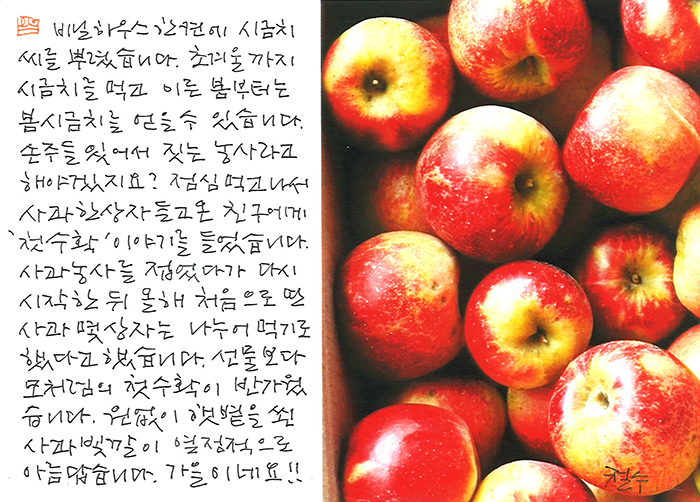 비닐하우스 한켠에 시금치
씨를 뿌렸습니다. 초겨울까지
시금치를 먹고 이른 봄부터는
봄시금치를 얻을 수 있습니다.
손주들 있어서 짓는 농사라고
해야겠지요? 점심 먹고나서
사과 한상자 들고 온 친구에게
'첫수확' 이야기를 들었습니다.
사과농사를 접었다가 다시
시작한 뒤 올해 처음으로 딴
사과 몇상자는 나누어 먹기로
했다고 했습니다. 선물보다
모처럼의 첫수확이 반가웠
습니다. 원없이 햇볕을 쬔
사과빛깔이 열정적으로
아름답습니다. 가을이네요!!
철수